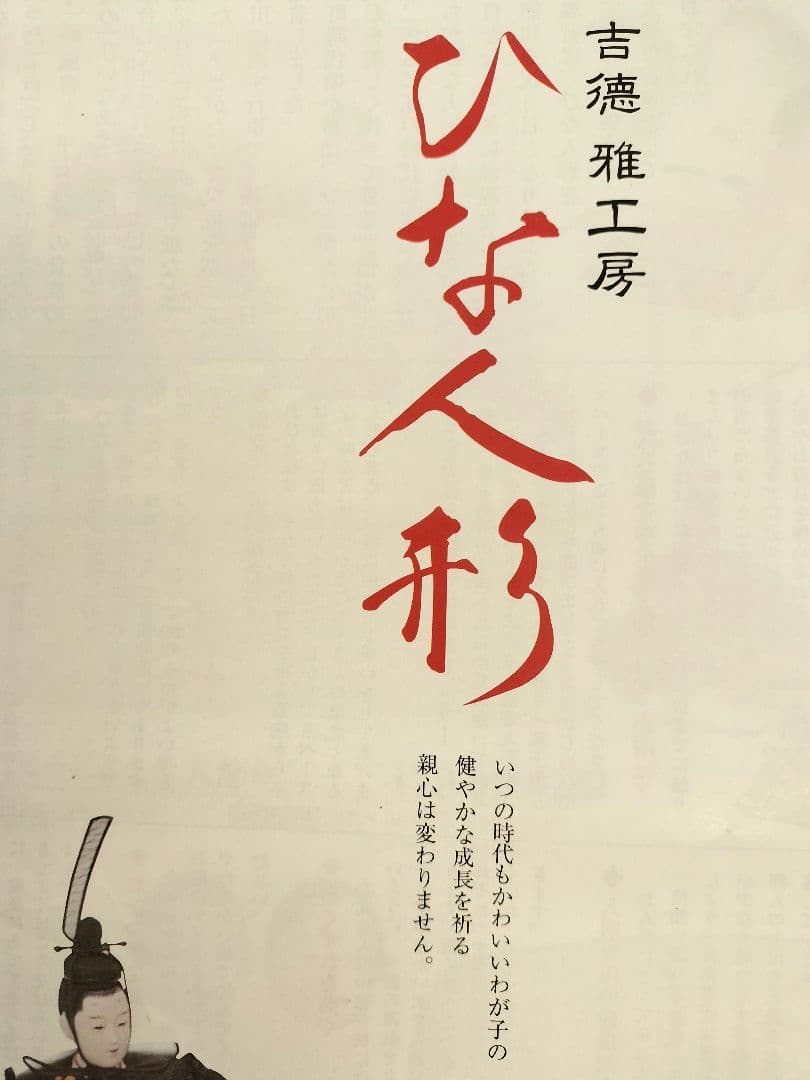 吉德 雅工房
ひな人形
いつの時代もかわいいわが子の
健やかな成長を祈る
親心は変わりません。